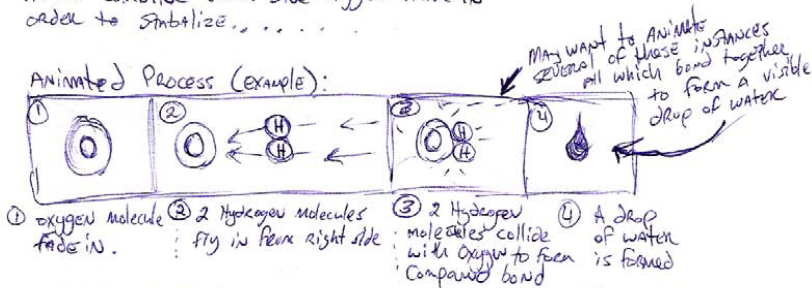 order to stabalize. . . . . . .
MAY WANT to ANIMATE
SEVERAL of these INSTANCES
All which bond together
to form A visible
drop of WATER
ANIMATED PROCESS (EXAMPLE):
① ② ③ ④
O H O H O
H H
① oxygen molecule
fade in.
② 2 Hydrogen molecules
fly in from right side
③ 2 Hydrogen
molecules collide
with Oxygen to form
Compound bond
④ A drop
of water
is formed